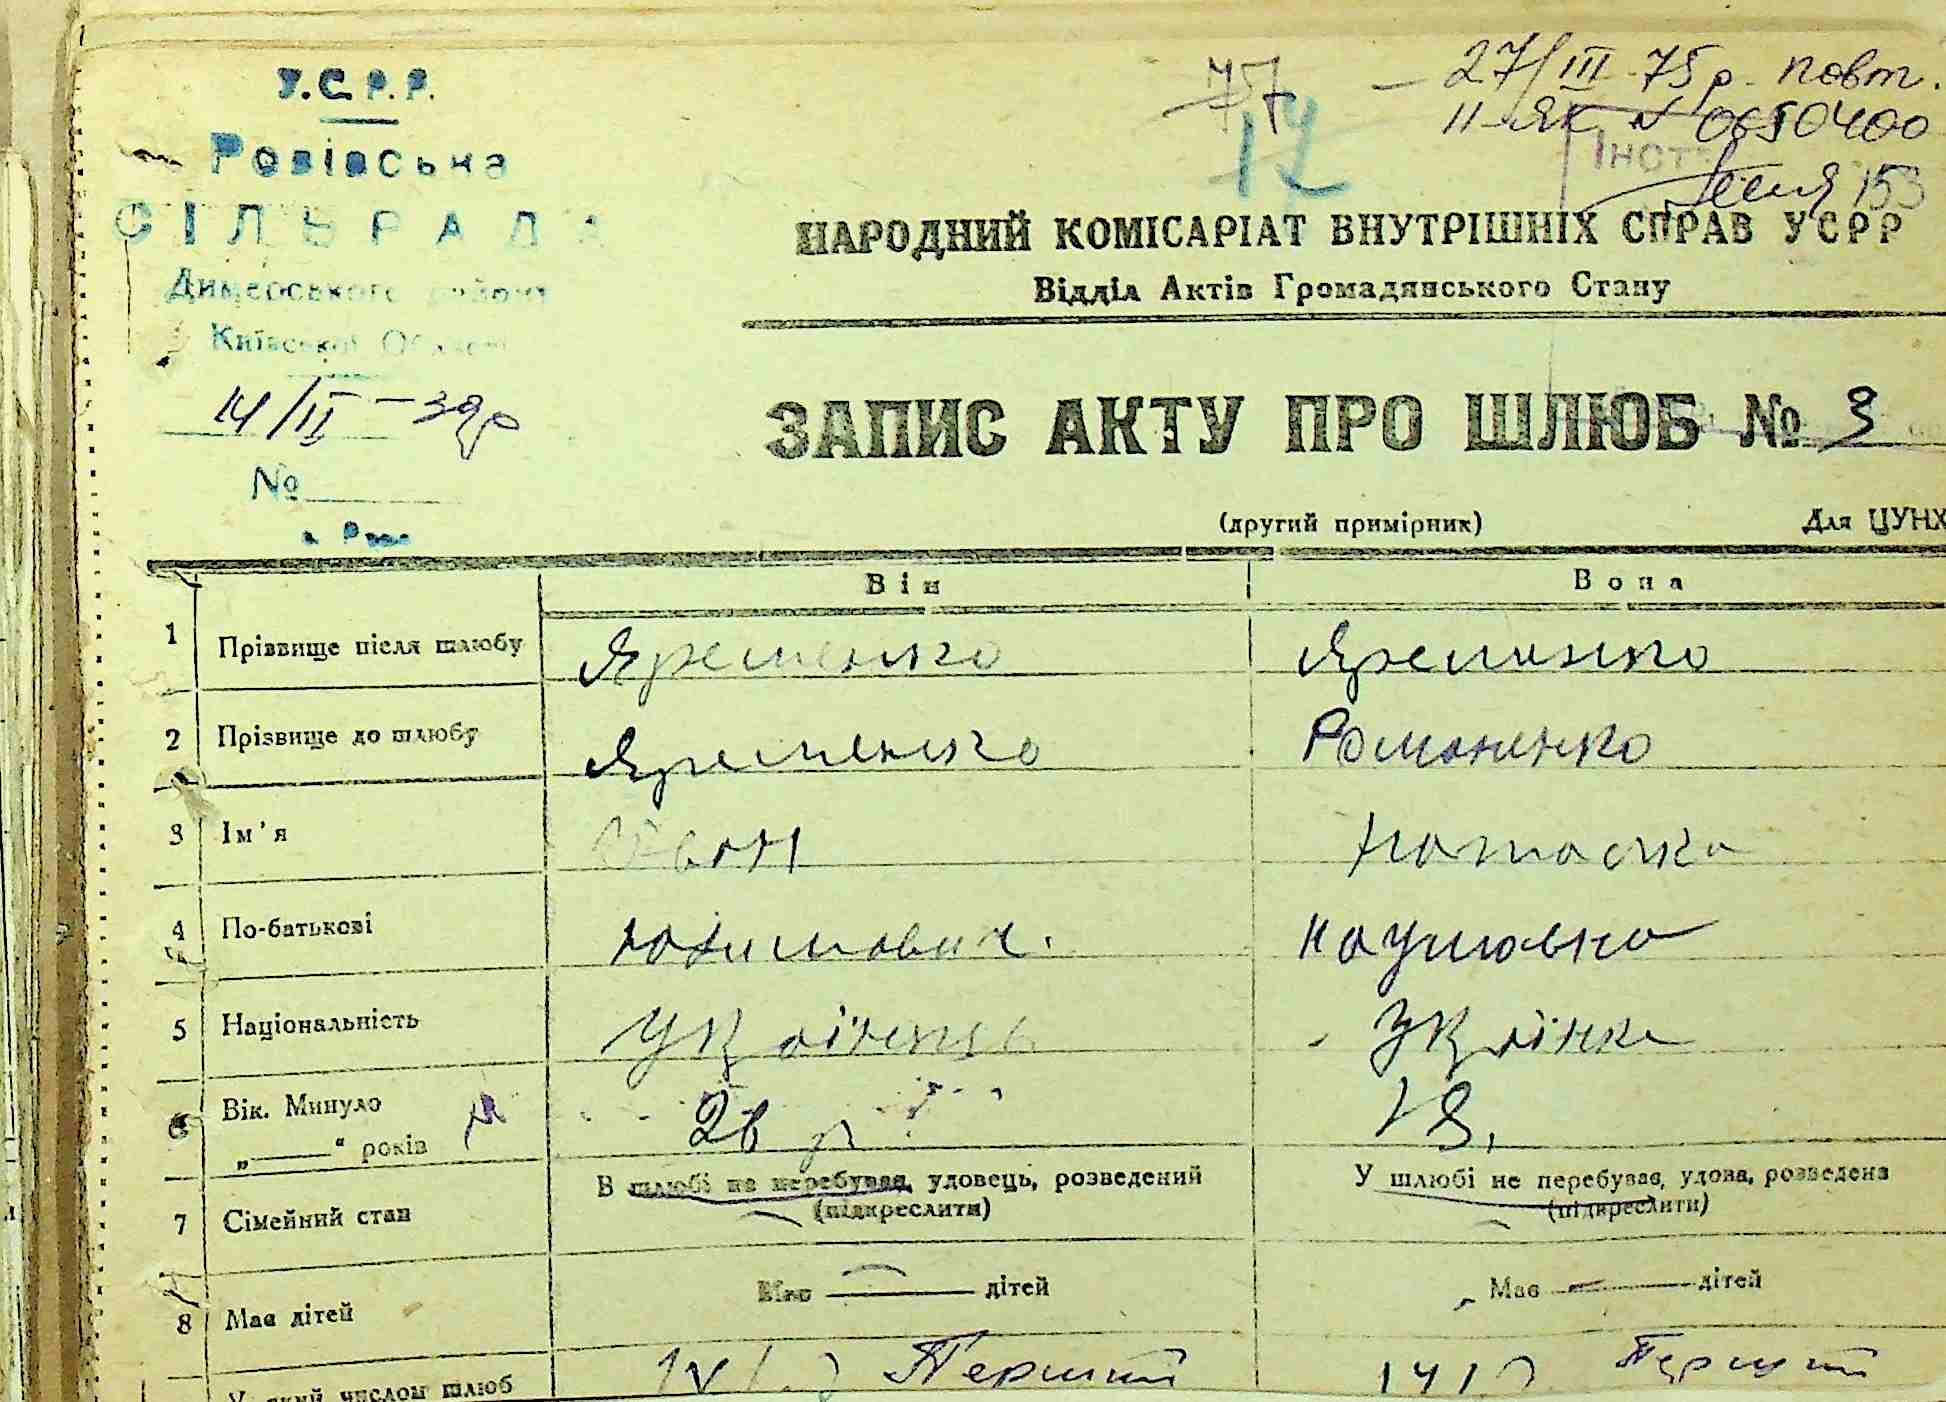 У.С.Р.Р.
Ровівська
СІЛЬРАДА
Димерського району
Київської Області
14/II – 39р
№
77
12
– 27/III 75р. повт.
II-ЯК № 0650400
Інст
153
НАРОДНИЙ КОМІСАРІАТ ВНУТРІШНІХ СПРАВ УСРР
Відділ Актів Громадянського Стану
ЗАПИС АКТУ ПРО ШЛЮБ № 3
(другий примірник)
Для ЦУНХ
Він Вона
1 Прізвище після шлюбу Яременко Яременко
2 Прізвище до шлюбу Яременко Романенко
3 Ім'я Іван Наталка
4 По-батькові Юхимович. Наумовна
5 Національність Українець Українка
6 Вік. Минуло
„——“ років 26 р 18.
7 Сімейний стан В шлюбі не перебував, удовець, розведений (підкреслити) У шлюбі не перебував, удова, розведена (підкреслити)
8 Має дітей Має —— дітей Має —— дітей
У який числом шлюб Перший Перший